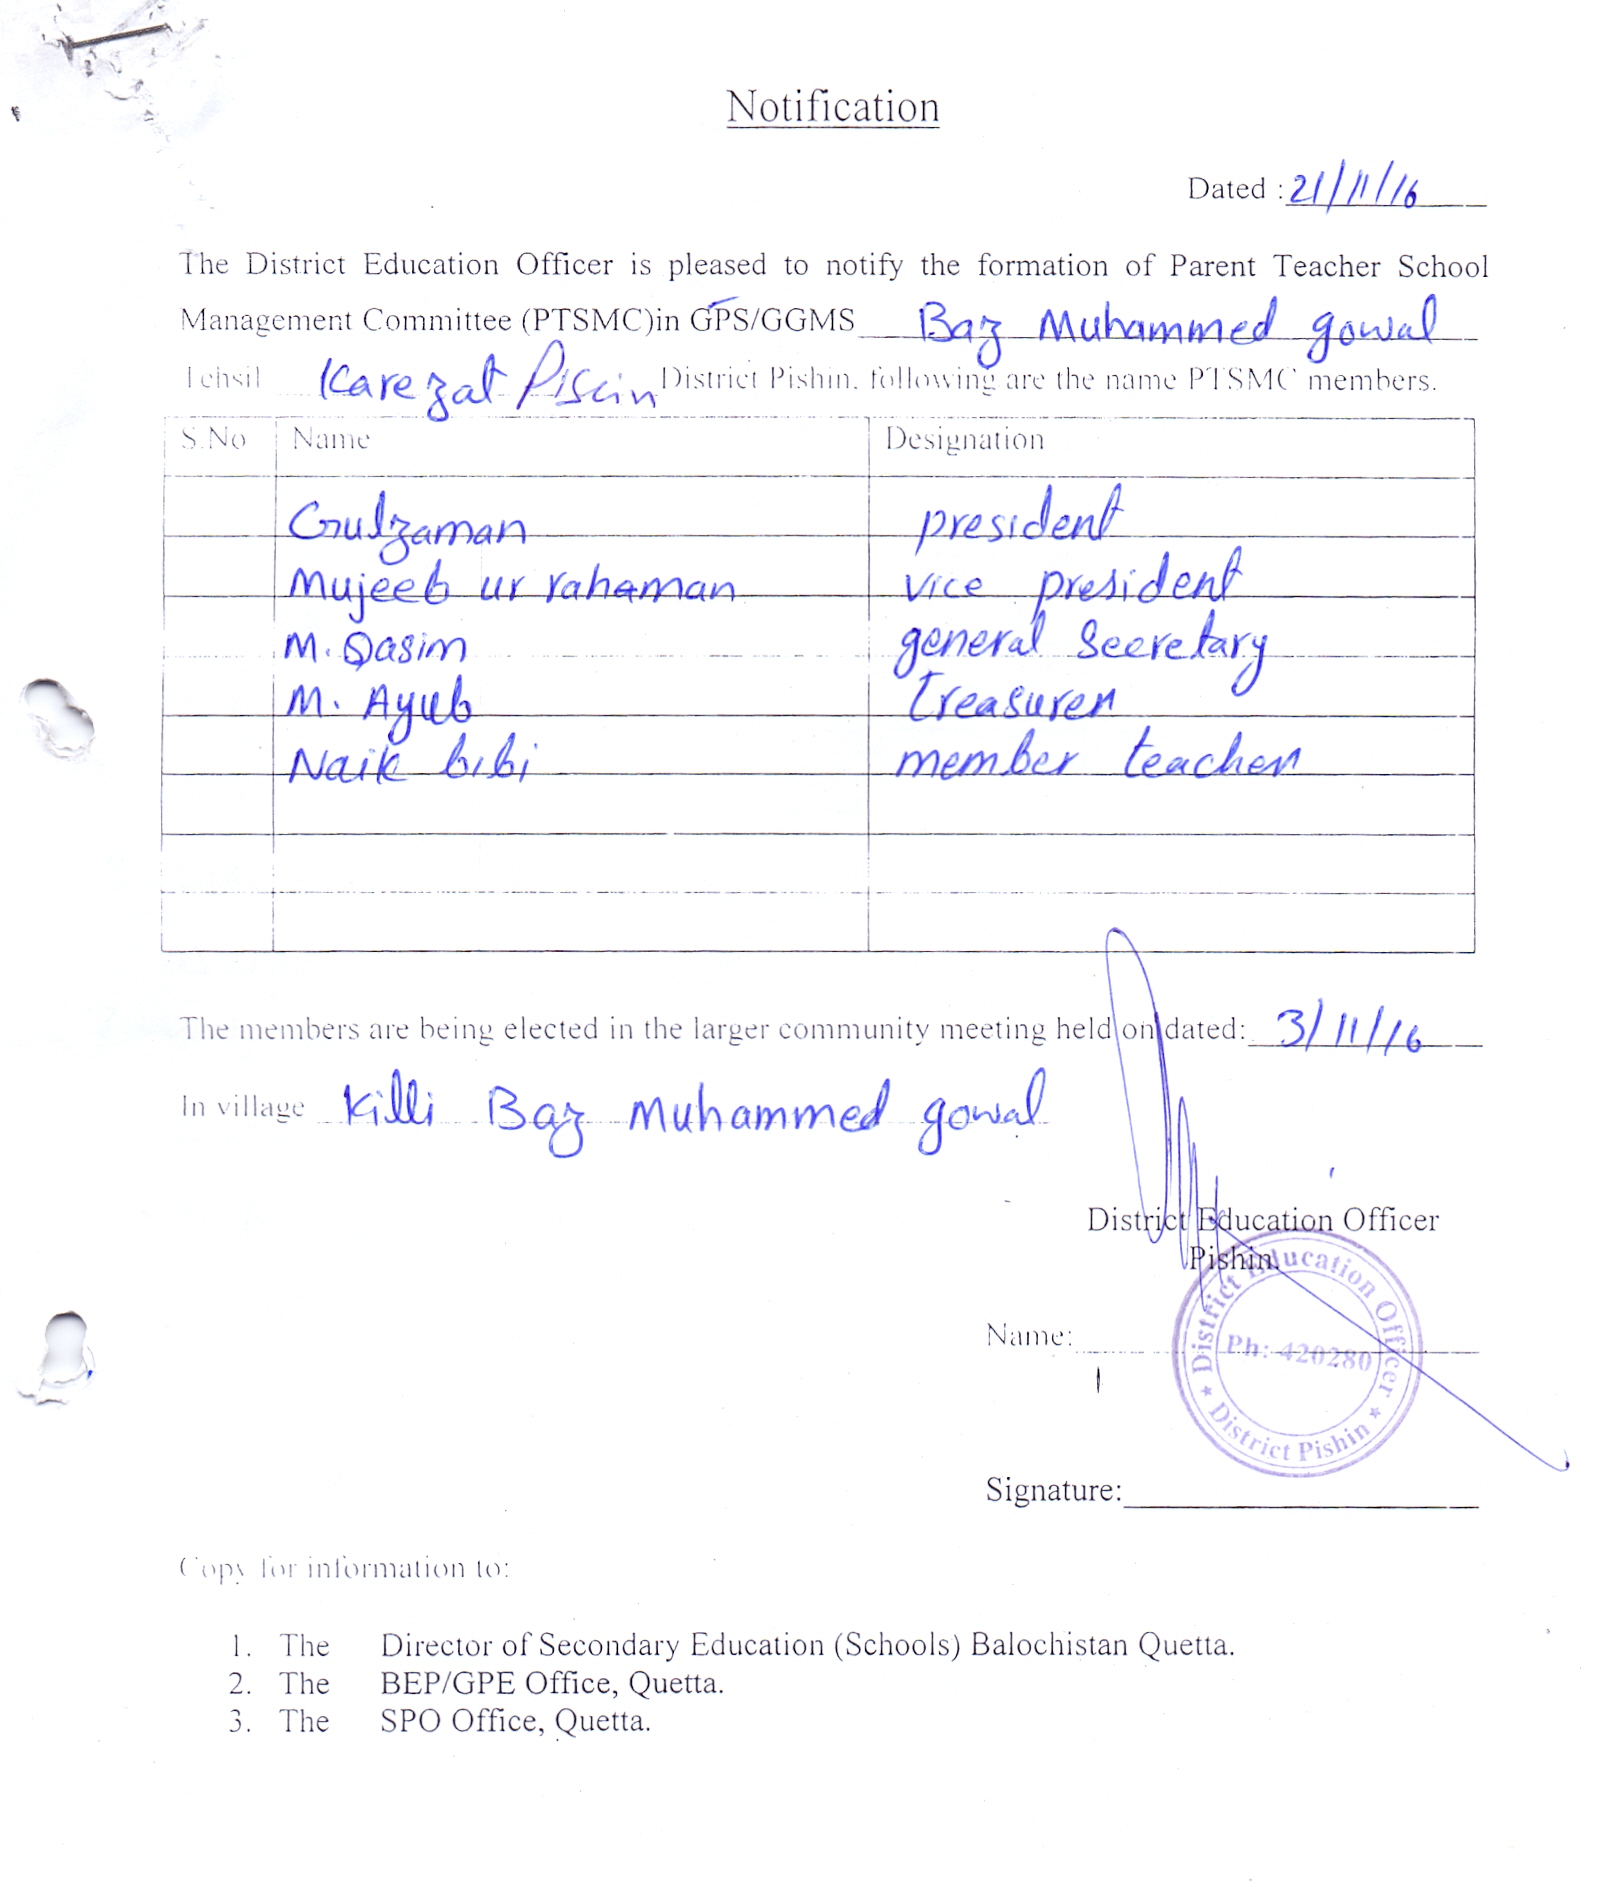 Notification
Dated : 21/11/16
The District Education Officer is pleased to notify the formation of Parent Teacher School
Management Committee (PTSMC)in GPS/GGMS Baz Muhammed gowal
Tehsil Karezat Piscin District Pishin. following are the name PTSMC members.
S.No Name Designation
Gulzaman president
Mujeeb ur rahaman vice president
M. Qasim general Secretary
M. Ayub Treasurer
Naik bibi member teacher
The members are being elected in the larger community meeting held on dated: 3/11/16
In village Killi Baz Muhammed gowal
District Education Officer
Pishin.
Name:
District Education Officer
Ph: 420280
District Pishin
Signature:
Copy for information to:
1. The Director of Secondary Education (Schools) Balochistan Quetta.
2. The BEP/GPE Office, Quetta.
3. The SPO Office, Quetta.